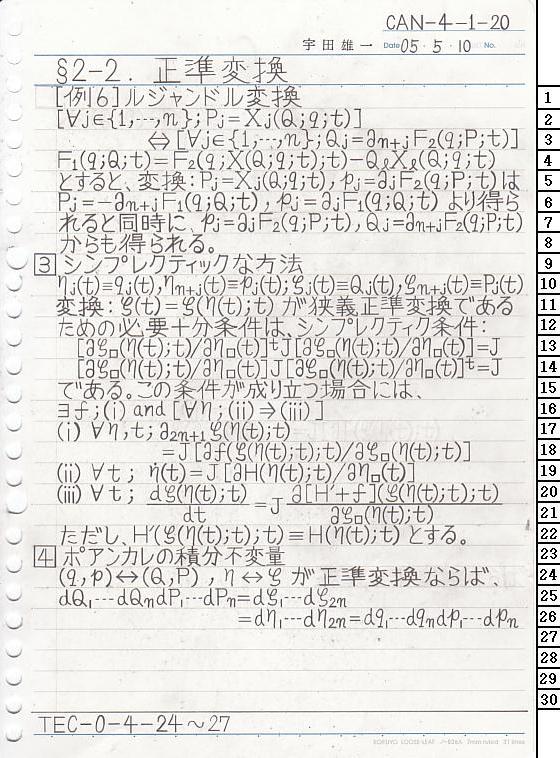 CAN-4-1-20
宇田雄一 Date 05・5・10 No.
§2-2. 正準変換
[例6]ルジャンドル変換
[∀j∈{1,…,n};Pj=Xj(Q;q;t)]
⇔[∀j∈{1,…,n};Qj=∂n+jF2(q;P;t)]
F1(q;Q;t)=F2(q;X(Q;q;t);t)-QℓXℓ(Q;q;t)
とすると、変換:Pj=Xj(Q;q;t),pj=∂jF2(q;P;t)は
Pj=-∂n+jF1(q;Q;t),pj=∂jF1(q;Q;t)より得ら
れると同時に、pj=∂jF2(q;P;t),Qj=∂n+jF2(q;P;t)
からも得られる。
3 シンプレクティックな方法
ηj(t)≡qj(t),ηn+j(t)≡pj(t);ζj(t)≡Qj(t),ζn+j(t)≡Pj(t)
変換:ζ(t)=ζ(η(t);t)が狭義正準変換である
ための必要十分条件は、シンプレクティク条件:
[∂ζ□(η(t);t)/∂η□(t)]ᵗJ[∂ζ□(η(t);t)/∂η□(t)]=J
[∂ζ□(η(t);t)/∂η□(t)]J[∂ζ□(η(t);t)/∂η□(t)]ᵗ=J
である。この条件が成り立つ場合には、
∃f;(i) and [∀η;(ii)⇒(iii)]
(i) ∀η,t;∂2n+1ζ(η(t);t)
=J[∂f(ζ(η(t);t);t)/∂ζ□(η(t);t)]
(ii) ∀t; η̇(t)=J[∂H(η(t);t)/∂η□(t)]
(iii) ∀t; dζ(η(t);t)/dt =J ∂[H'+f](ζ(η(t);t);t)/∂ζ□(η(t);t)
ただし、H'(ζ(η(t);t);t)≡H(η(t);t)とする。
4 ポアンカレの積分不変量
(q,p)↔(Q,P),η↔ζが正準変換ならば、
dQ1…dQndP1…dPn=dζ1…dζ2n
=dη1…dη2n=dq1…dqndp1…dpn
TEC-0-4-24~27
KOKUYO LOOSE-LEAF ノ-836A 7mm ruled 31 lines
1
2
3
4
5
6
7
8
9
10
11
12
13
14
15
16
17
18
19
20
21
22
23
24
25
26
27
28
29
30